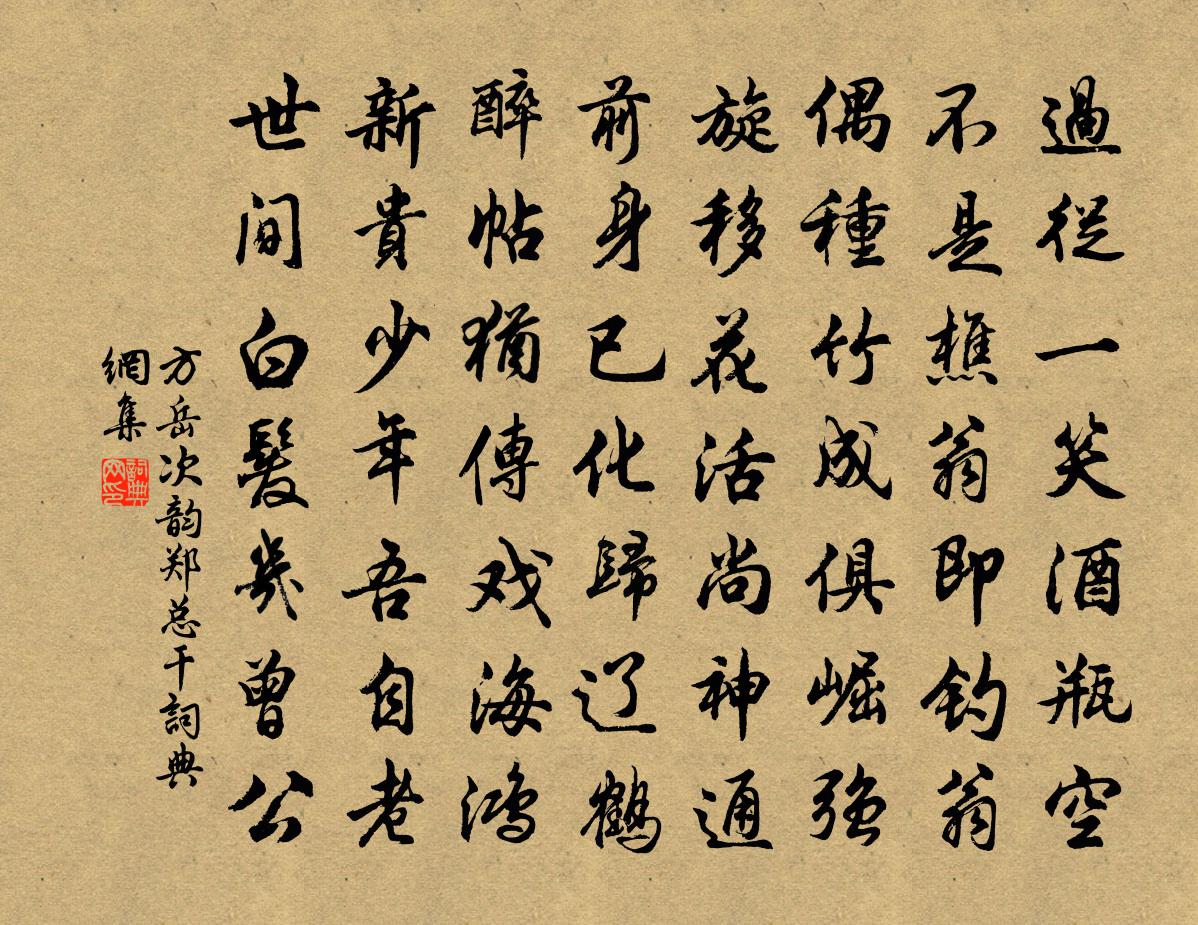 過從一笑酒瓶空
不是樵翁即釣翁
偶種竹成俱崛强
旋移花活尚神通
前身已化歸辽鶴
醉帖猶傳戏海鸿
新貴少年吾自老
世间白髮幾曾公
方岳次韵郑总干詞典
網集
詞典
网印